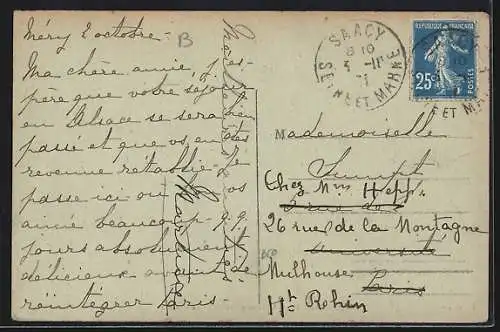 Méry 2 octobre-
B
Ma chère amie, j'es-
père que votre séjour
en Alsace se sera bien
passé et que vous en êtes
revenue rétablie. Je
passe ici ou vos
aimé beaucoup q.q.
jours absolument
délicieux avant de
réintégrer Paris-
SAACY
8 10
3 -11
SEINE ET MARNE
REPUBLIQUE FRANÇAISE
25c
POSTES
ET MAR
Mademoiselle
Chez Mme Hepp.
26 rue de la Montagne
Université
Mulhouse
Paris
Ht Rhin